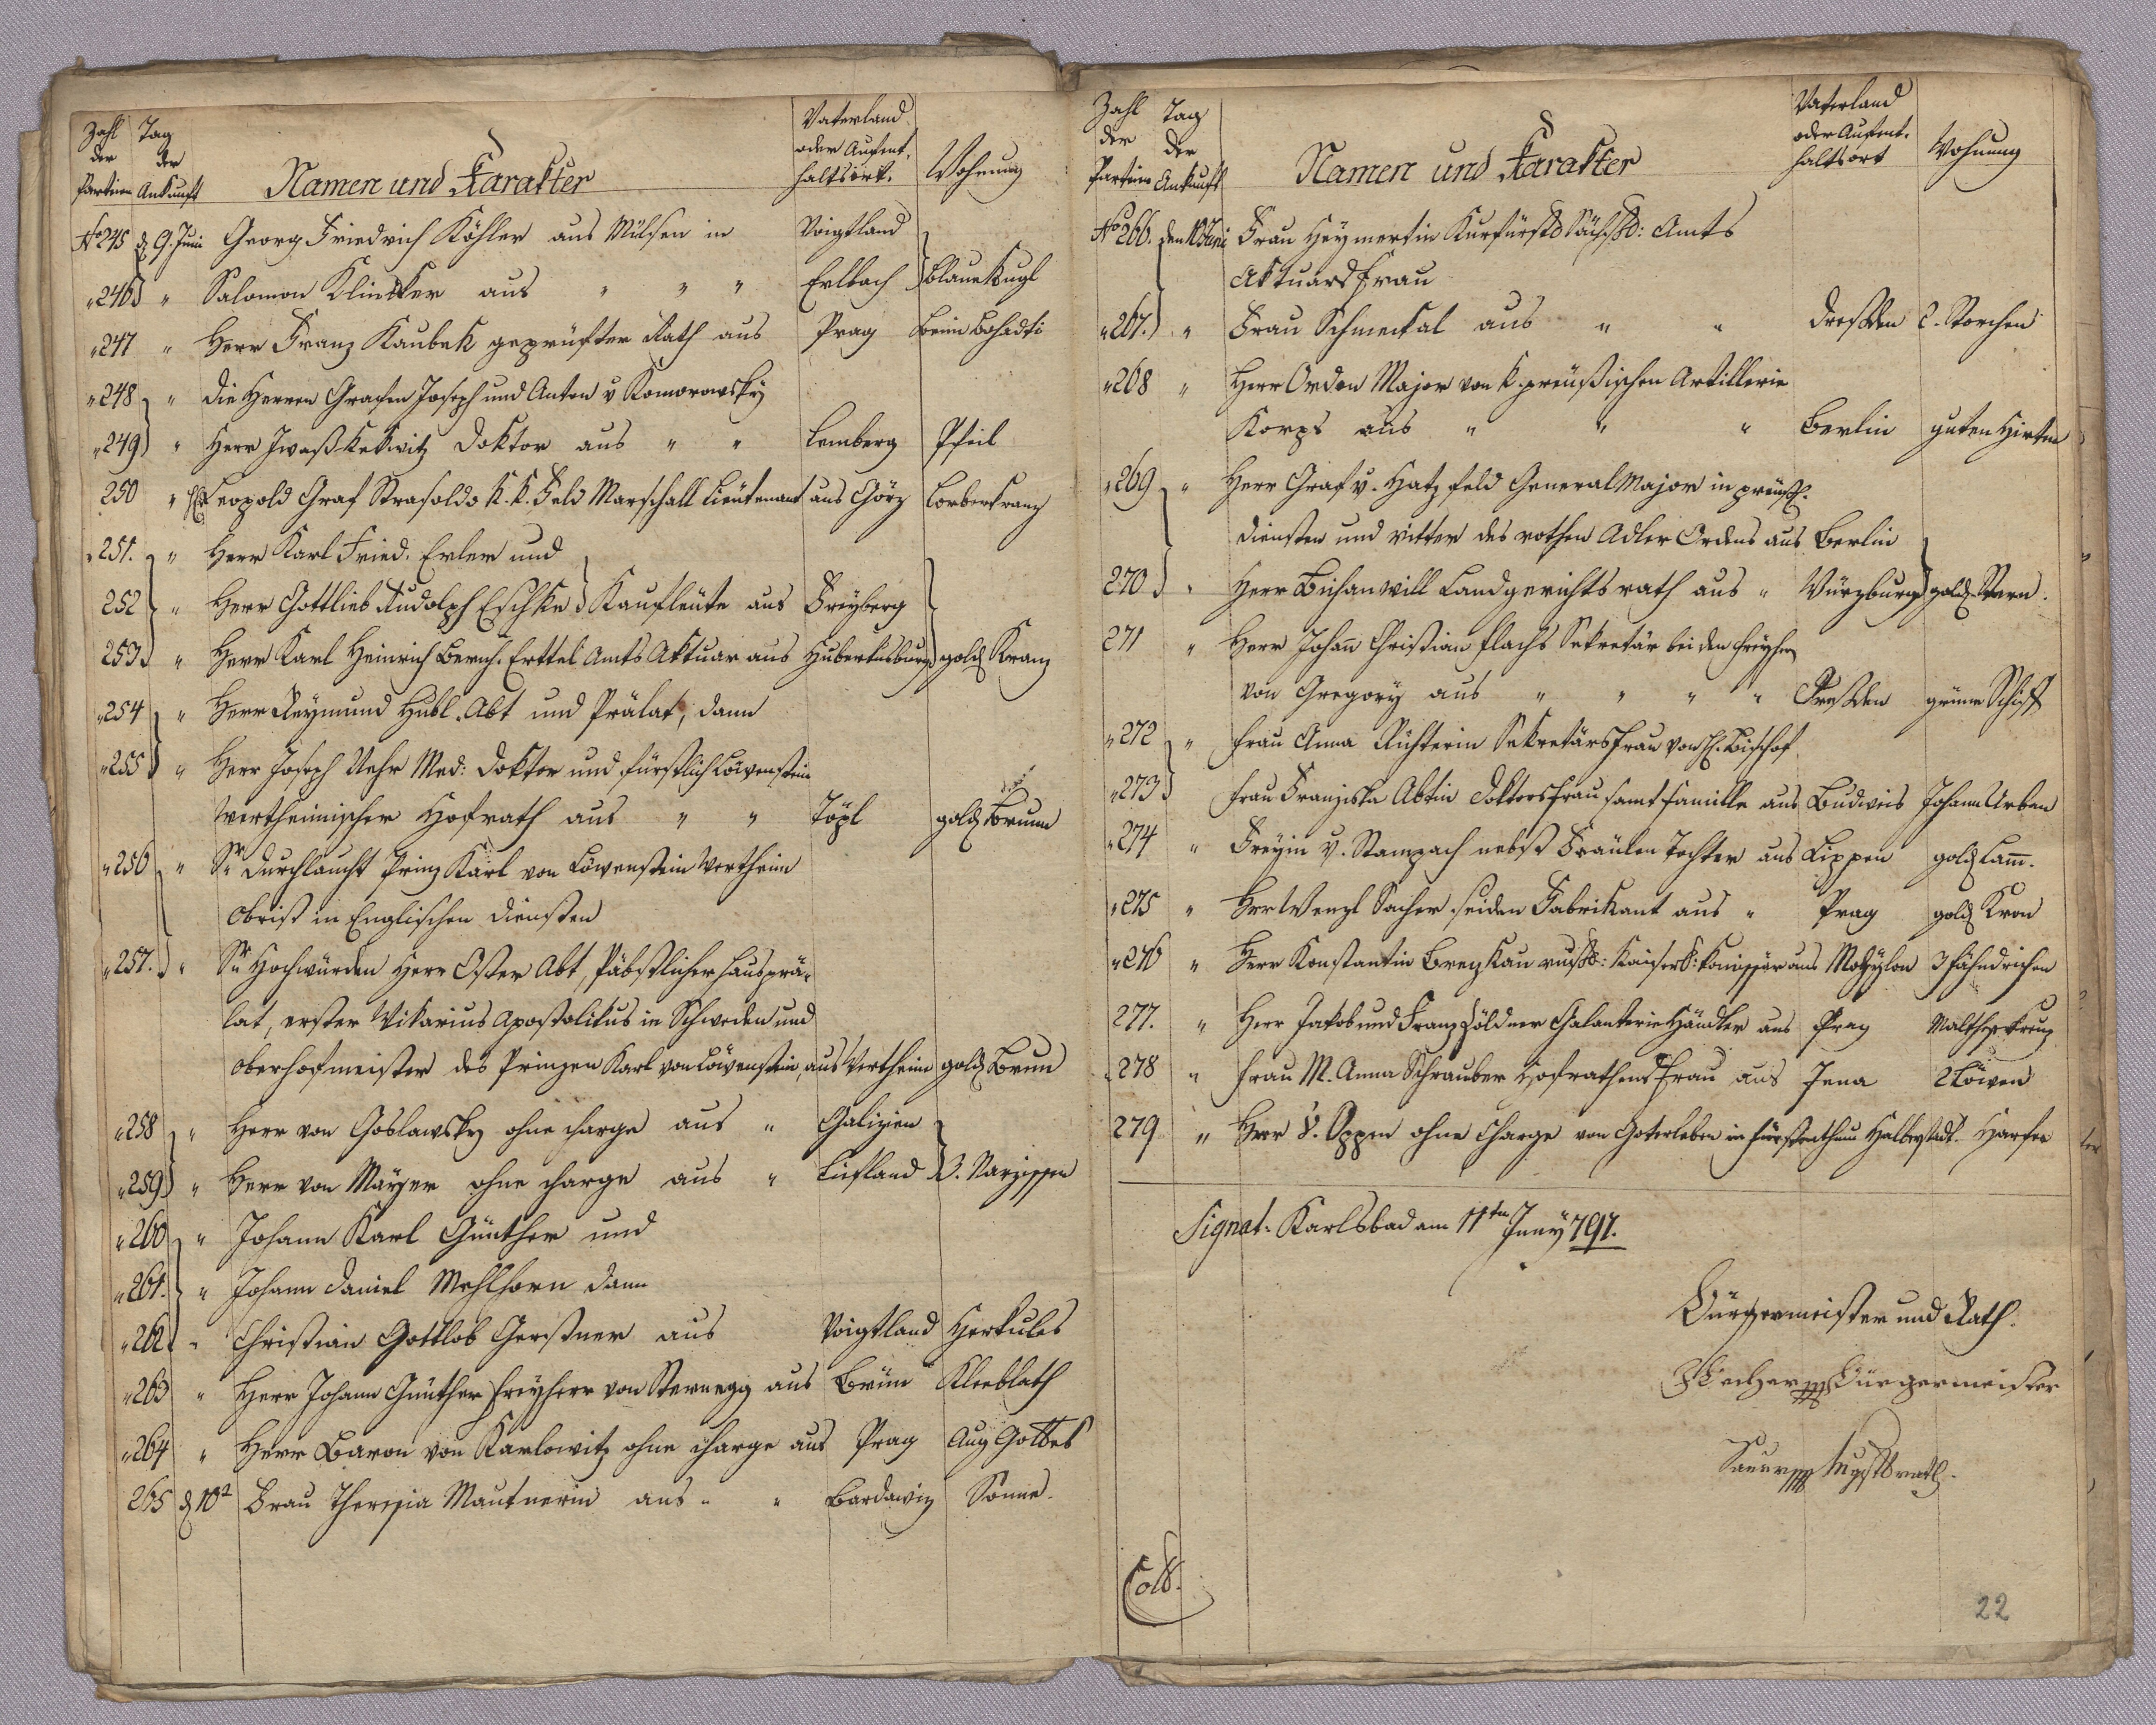 Zahl der Partien Tag der Ankunft Namen und Karakter Vaterland oder Aufent- haltsort. Wohnung
No 245 d 9. Juni Georg Friedrich Köhler aus Mülsen in Voigtland
" 246 " Salomon Klinsker aus " " " Erlbach blaue Kugl
" 247 " Herr Franz Kaubek geprüfter Rath aus Prag beim Bohadti
" 248 " die Herren Grafen Joseph und Anton v Komorowsky
" 249 " Herr Doktor aus " " Lemberg Pfeil
250 " Leopold Graf Strasoldo K. K. Feld Marschall Lieutenant aus Görz Lorberkranz
" 251. " Herr Karl Fried. Erler und
252 " Herr Gottlieb Rudolph Eschke Kaufleute aus Freyberg
253 " Herr Karl Heinrich Bernh. Erttel Amts Aktuar aus Hubertusburg gold Kranz
" 254 " Herr Reymund Hubl. Abt und Prälat, dann
" 255 " Herr Joseph Nehr Med: Doktor und fürstlich Löwenstein
wertheimischer Hofrath aus " " Töpl gold Brunn
" 256 " Sr Durchlaucht Prinz Karl von Löwenstein Wertheim
Obrist in Englischen Diensten
" 257. " Sr Hochwürden Herr Oster Abt, Päbstlicher Hausprä-
lat, erster Vikarius Apostolikus in Schweden und
Oberhofmeister des Prinzen Karl von Löwenstein, aus Wertheim gold Brun
" 258 " Herr von Goslawsky ohne charge aus " Galizien
" 259 " Herr von Mayer ohne charge aus " Liefland 3. Narzissen
" 260 " Johann Karl Günther und
" 261. " Johann Daniel Mehlhorn dann
" 262 " Christian Gottlob Gerstner aus Voigtland Herkules
" 263 " Herr Johann Günther Freyherr von Sternegg aus Brünn Kleeblath
" 264 " Herr Baron von Karlowitz ohne charge aus Prag Aug Gottes
265 d 10 Frau Theresia Mautnerin aus " " Sonne.
Zahl der Partien Tag der Ankunft Namen und Karakter Vaterland oder Aufent- haltsort Wohnung
No 266. den 10 Juni Frau Heymertin Kurfürstl Sächsl: Amts
Aktuarsfrau
" 267. " Frau Schmeikal aus " " Dresden 2. Storchen
" 268 " Herr Orden Major von K. preußischen Artillerie
Korps aus " " " Berlin guten Hirten
" 269 " Herr Graf v. Hatzfeld General Major in preuß.
Diensten und Ritter des rothen Adler Ordens aus Berlin
270 " Herr Landgerichtsrath aus " Würzburg gold Stern.
271 " Herr Johann Christian Flachs Sekretär bei den Freyherr
von Gregory aus " " " " Dresden grüne Schiff
" 272 " Frau Anna Richterin Sekretärsfrau von H. Bischof
" 273 Frau Franziska Abtin Doktorsfrau samt Familie aus Budweis Johann Urban
" 274 " Freyin v. Stampach nebst Fräulen Tochter aus Lippen gold Lamm.
" 275 " Herr Wenzl Sacher seiden Fabrikant aus " Prag gold Kron
" 276 " Herr Konstantin Brezkau russ: Kaiserl: aus 3 Fähndrichen
277. " Herr Jakob und Franz Zöldner Galanterie Händler aus Prag Malthesekreuz
" 278 " Frau M. Anna Schrauber Hofrathens Frau aus Jena 2 Löwen
279 " Herr v. Oppen ohne Charge von Goterleben in fürstenthum Halberstadt. Harfe
Signat: Karlsbad am 11ten Juny 797.
Bürgermeister und Rath.
Bürgermeister
Coll.
22